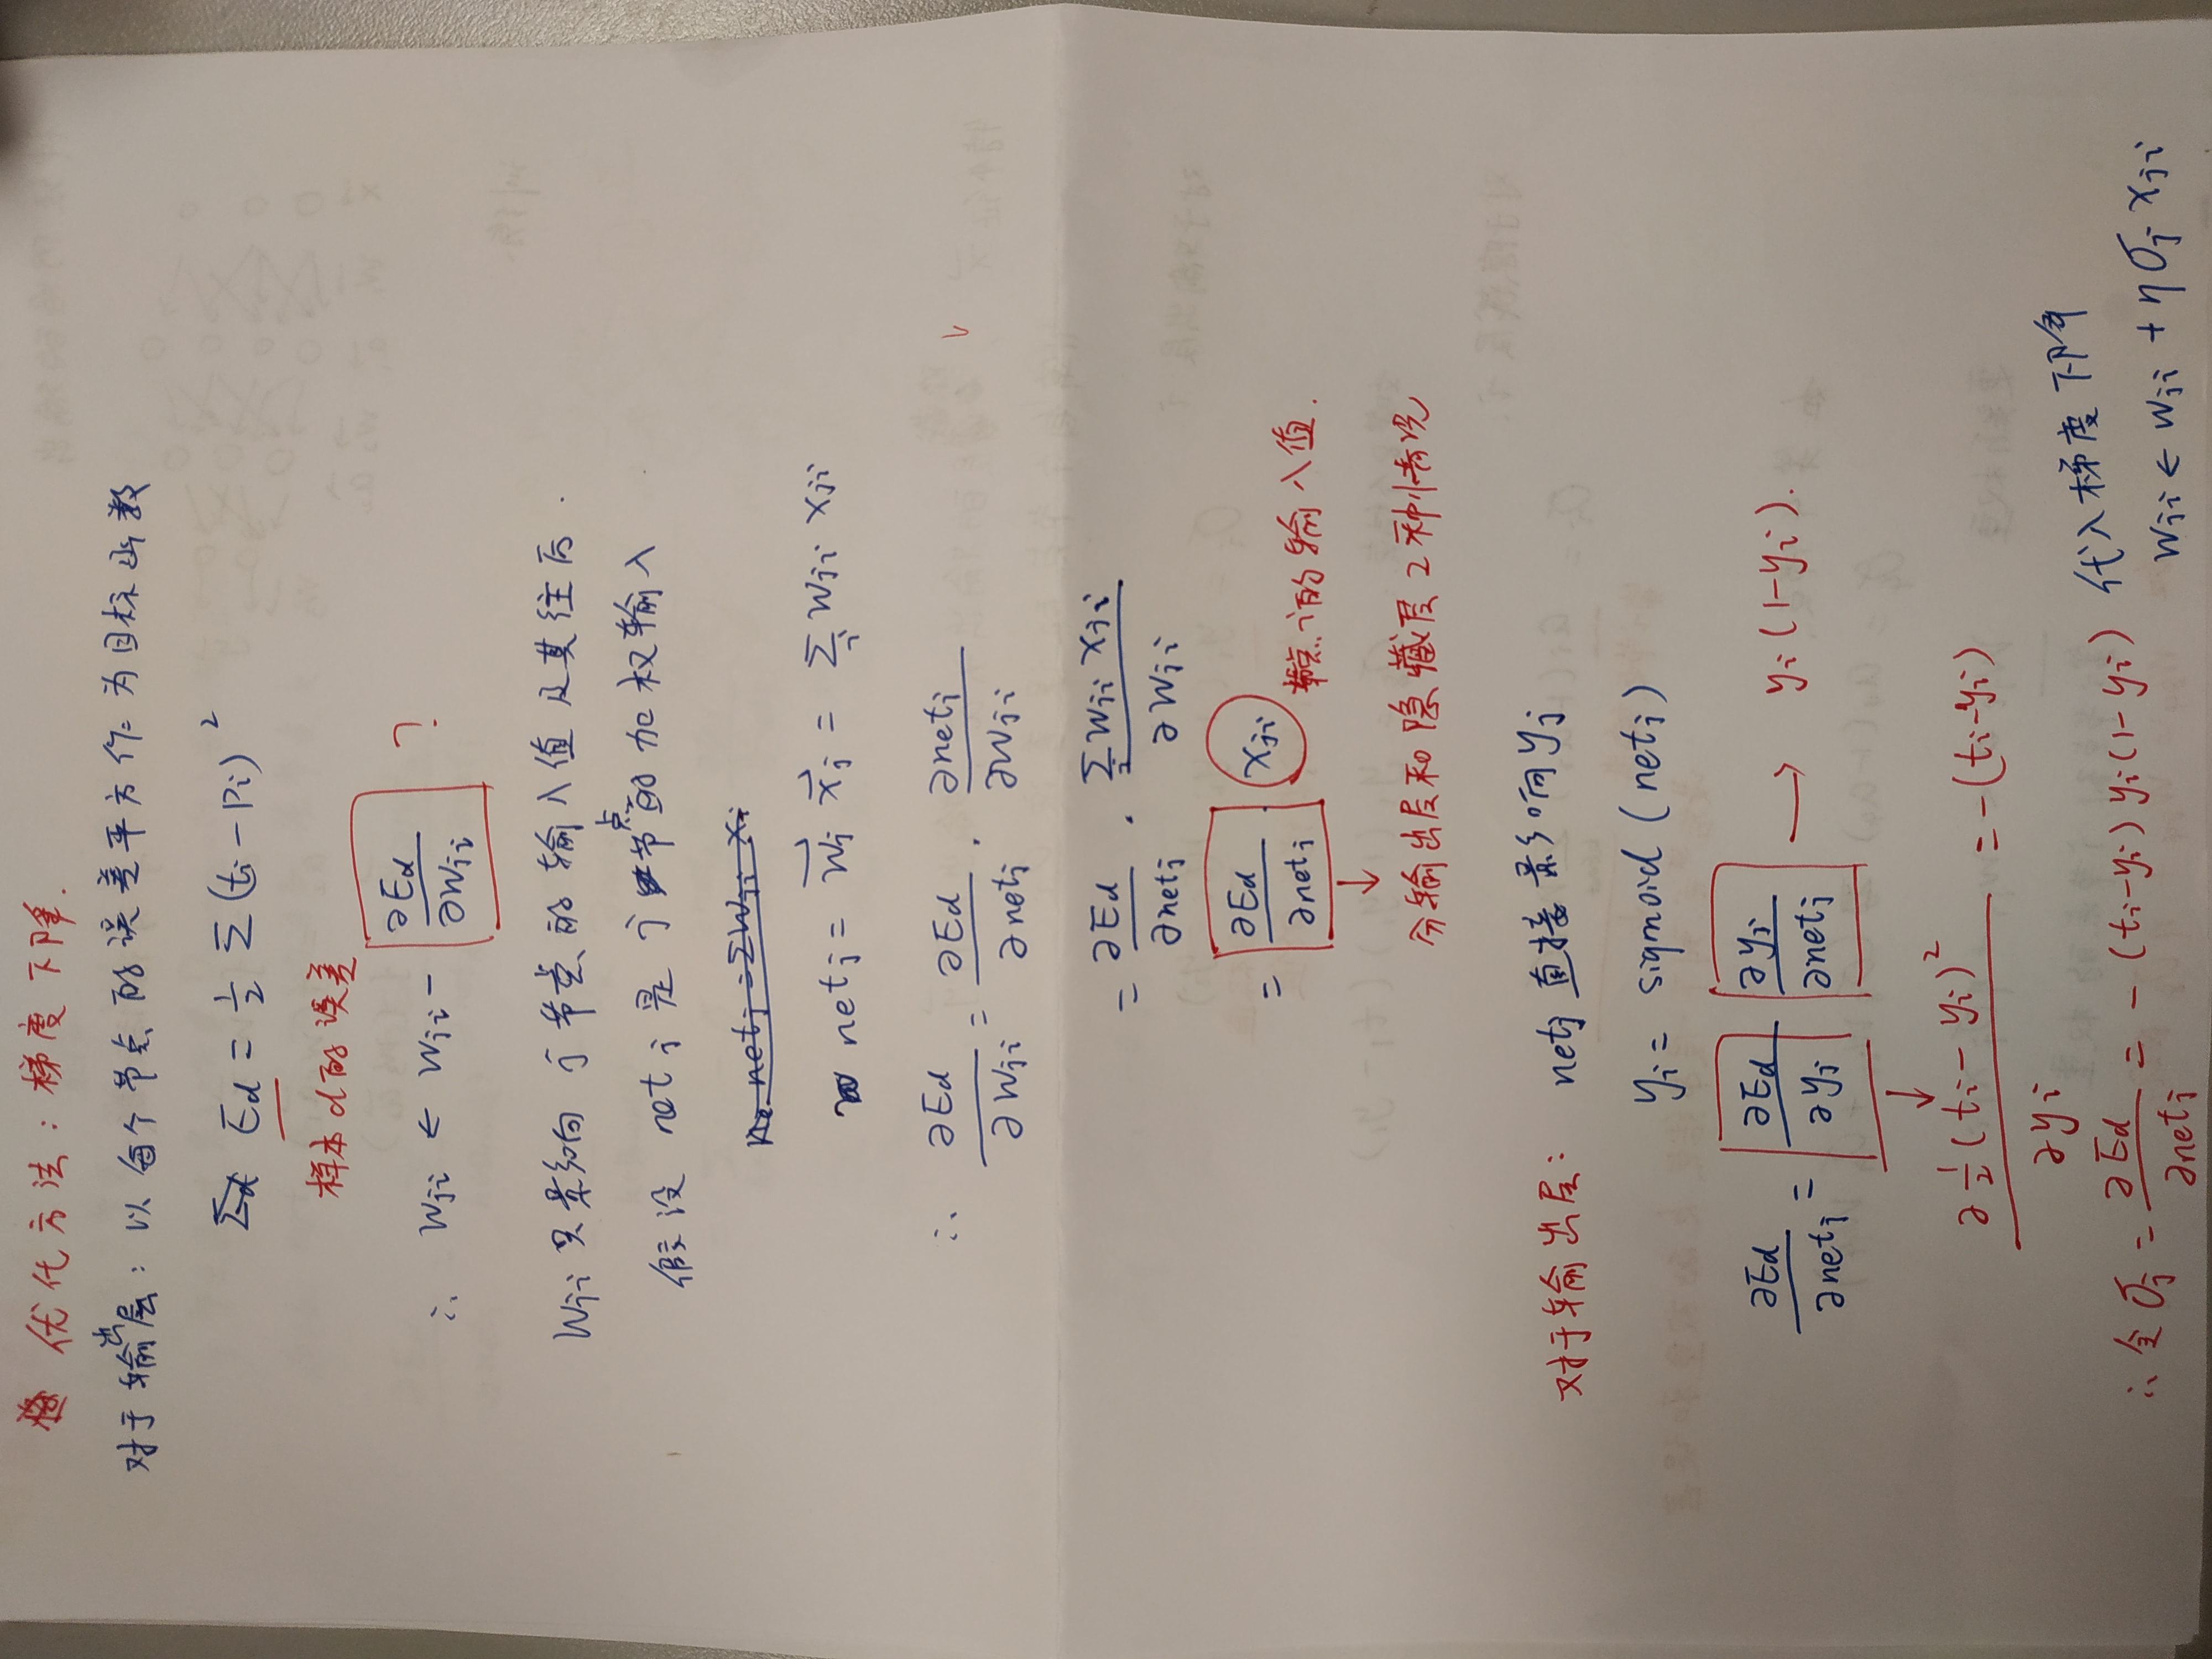 优化方法：梯度下降.
对于输出层：以每个节点的误差平方作为目标函数
Ed = 1/2 Σ (ti - Pi)²
样本d的误差
∴ Wji ← Wji - ∂Ed/∂Wji ?
Wji 只影响 j 节点的输入值及其往后.
假设 netj 是 j 节点的加权输入
netj = ΣWji Xi
netj = W⃗j x⃗j = Σi Wji Xji
∴ ∂Ed/∂Wji = ∂Ed/∂netj · ∂netj/∂Wji
= ∂Ed/∂netj · Σi Wji Xji/∂Wji
= ∂Ed/∂netj · Xji 节点i的输入值.
↓
分输出层和隐藏层2种情况
对于输出层： netj 直接影响 yj
yi = sigmoid (netj)
∂Ed/∂netj = ∂Ed/∂yj ∂yj/∂netj → yi(1-yi).
↓
∂ 1/2 (ti - yi)²/∂yi = -(ti-yi)
∴ 令 σj = ∂Ed/∂netj = - (ti-yi) yi (1-yi) 代入梯度下降
Wji ← Wji + η σj Xji